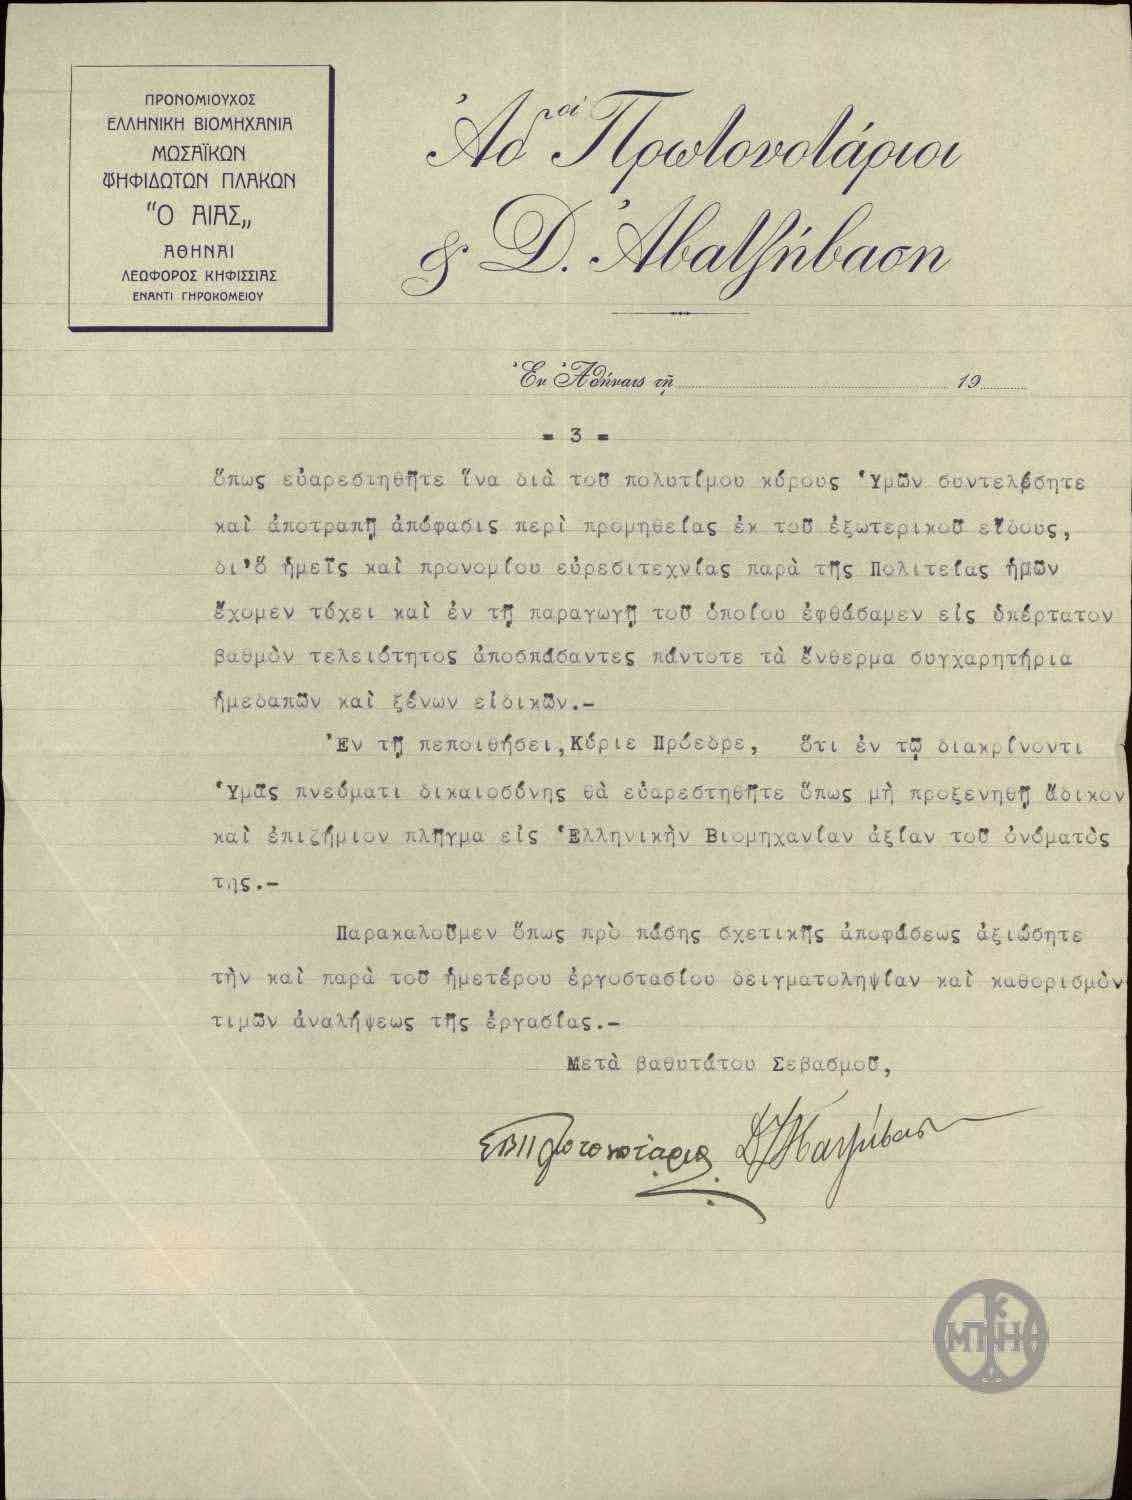 ΠΡΟΝΟΜΙΟΥΧΟΣ
ΕΛΛΗΝΙΚΗ ΒΙΟΜΗΧΑΝΙΑ
ΜΩΣΑΪΚΩΝ
ΨΗΦΙΔΩΤΩΝ ΠΛΑΚΩΝ
"Ο ΑΙΑΣ„
ΑΘΗΝΑΙ
ΛΕΩΦΟΡΟΣ ΚΗΦΙΣΣΙΑΣ
ΕΝΑΝΤΙ ΓΗΡΟΚΟΜΕΙΟΥ
Ἀδοί Πρωτονοτάριοι
& Δ. Ἀβατζήβαση
Ἐν Ἀθήναις τῇ 19
= 3 =
ὅπως εὐαρεστηθῆτε ἵνα διὰ τοῦ πολυτίμου κύρους Ὑμῶν συντελέσητε
καὶ ἀποτραπῇ ἀπόφασις περὶ προμηθείας ἐκ τοῦ ἐξωτερικοῦ εἴδους,
δι'ὅ ἡμεῖς καὶ προνομίου εὑρεσιτεχνίας παρὰ τῆς Πολιτείας ἡμῶν
ἔχομεν τύχει καὶ ἐν τῇ παραγωγῇ τοῦ ὁποίου ἐφθάσαμεν εἰς ὑπέρτατον
βαθμὸν τελειότητος ἀποσπάσαντες πάντοτε τὰ ἔνθερμα συγχαρητήρια
ἡμεδαπῶν καὶ ξένων εἰδικῶν.-
Ἐν τῇ πεποιθήσει, Κύριε Πρόεδρε, ὅτι ἐν τῷ διακρίνοντι
Ὑμᾶς πνεύματι δικαιοσύνης θὰ εὐαρεστηθῆτε ὅπως μὴ προξενηθῇ ἄδικον
καὶ ἐπιζήμιον πλῆγμα εἰς Ἑλληνικὴν Βιομηχανίαν ἀξίαν τοῦ ὀνόματὸς
της.-
Παρακαλοῦμεν ὅπως πρὸ πάσης σχετικῆς ἀποφάσεως ἀξιώσητε
τὴν καὶ παρὰ τοῦ ἡμετέρου ἐργοστασίου δειγματοληψίαν καὶ καθορισμὸν
τιμῶν ἀναλήψεως τῆς ἐργασίας.-
Μετὰ βαθυτάτου Σεβασμοῦ,
Πρωτονοτάριος